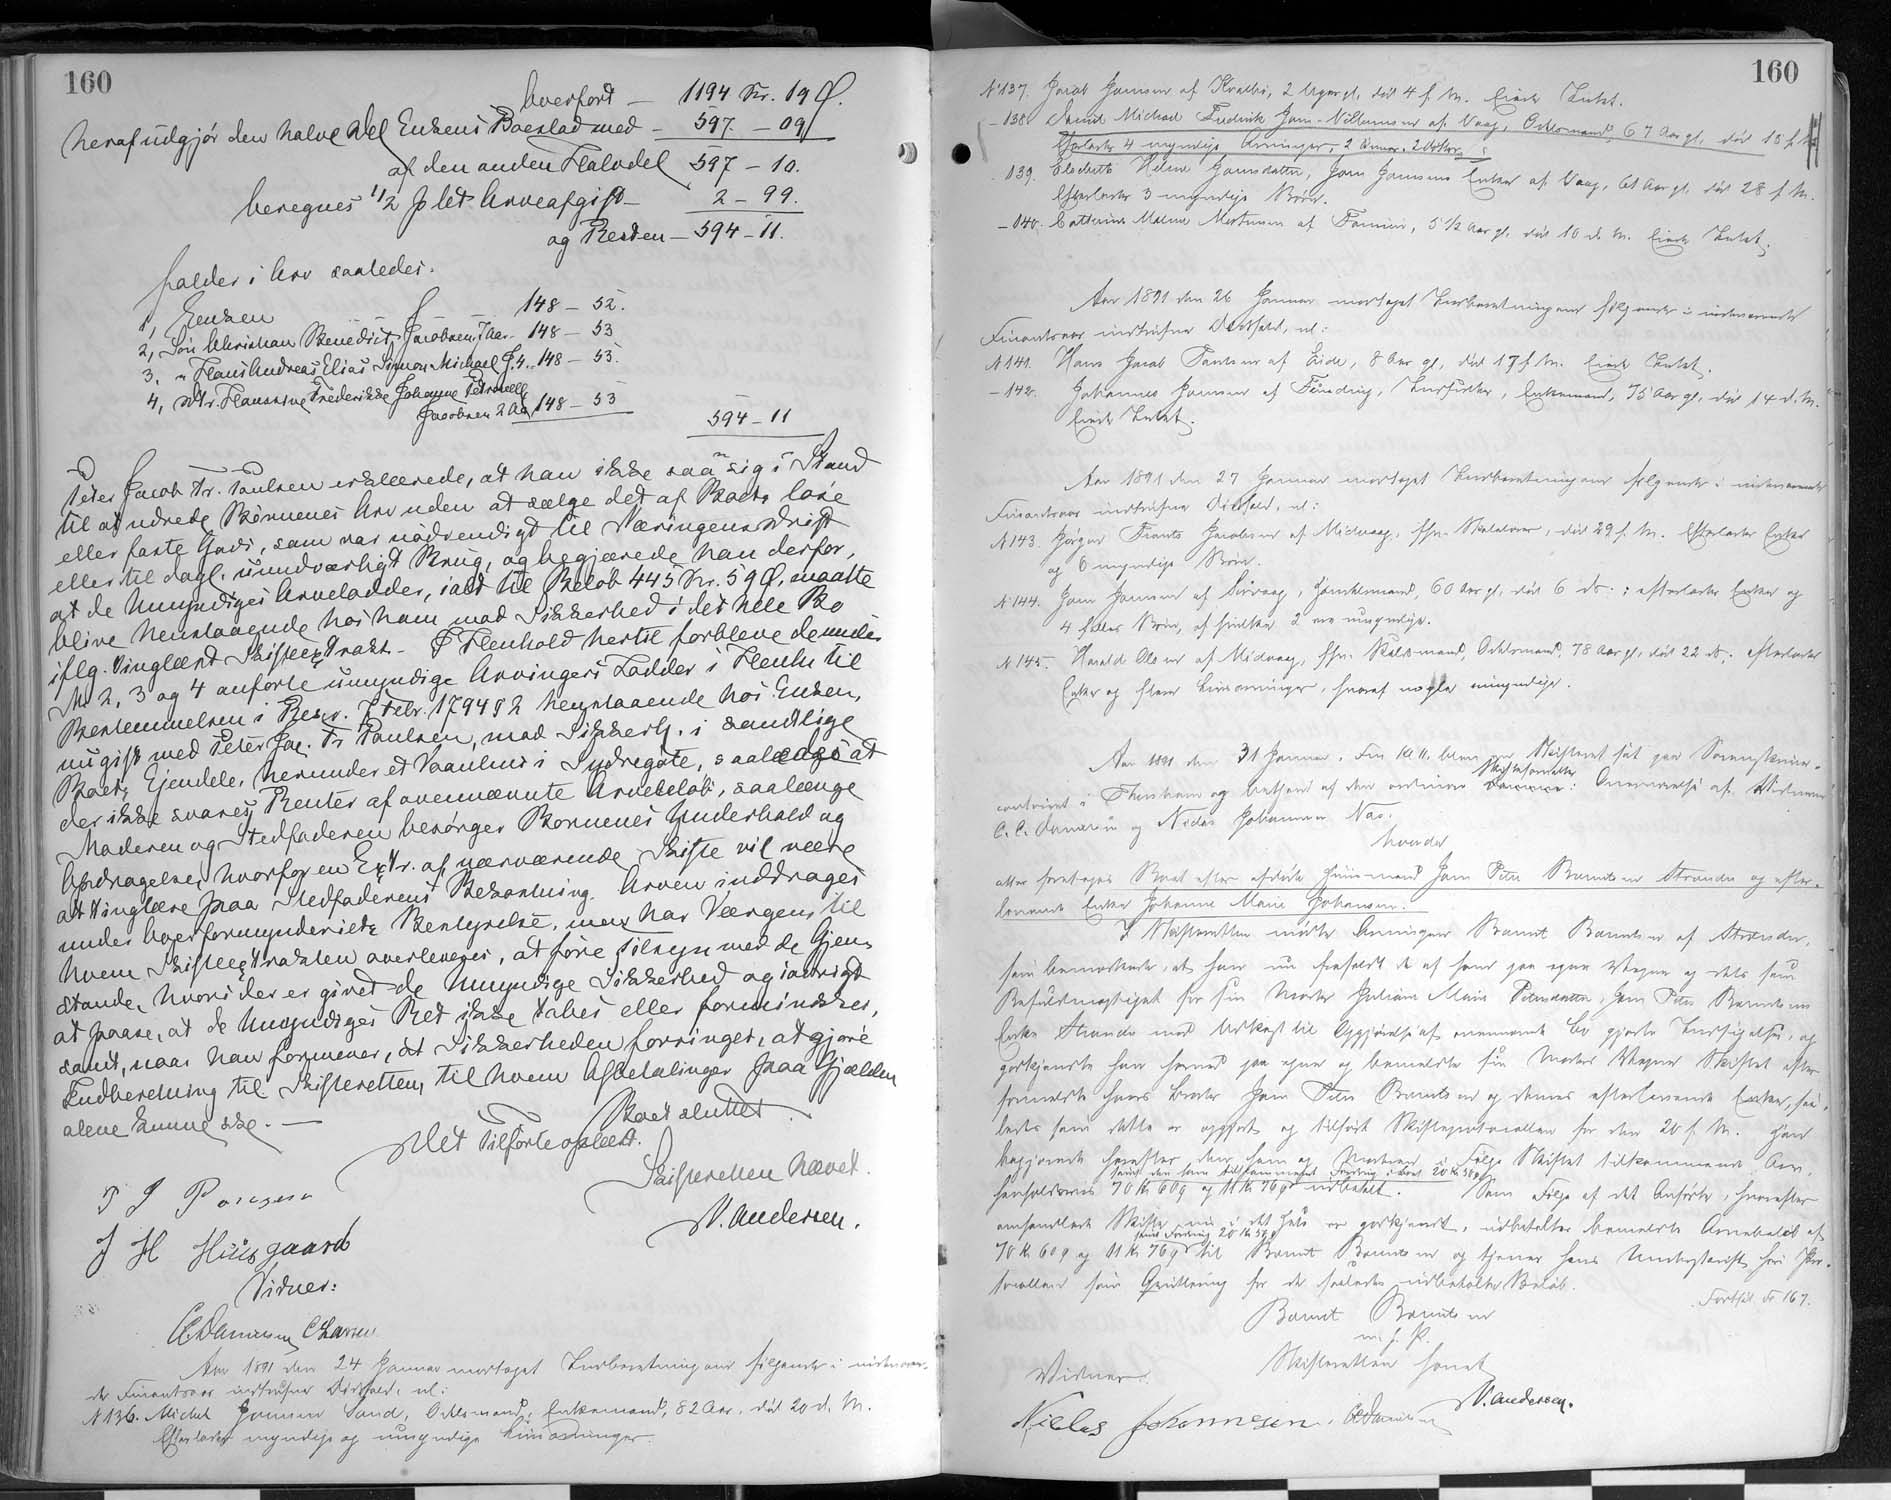 160
Overført — 1194 Kr. 19 Ø.
heraf udgjør den halve Del Enkens Boeslod med — 597. — 09
af den anden Halvdel 597 — 10.
beregnes 1/2 pCet Arveafgift — 2 — 99.
og Resten — 594 — 11.
falder i Arv saaledes.
1, Enken 148 — 52.
2, Søn Christian Benedict Jacobsen 7 Aar 148 — 53
3, " Hans Andreas Elias Simon Michael J. 4. 148 — 53.
4, Dtr. Hansine Frederikke Johanne Petronelle
Jacobsen 2 Aar 148 — 53
594 — 11
Peter Jacob Fr. Poulsen erklærede, at han ikke saa sig i Stand
til at udrede Børnenes Arv uden at sælge det af Boets løse
eller faste Gods, som var nødvendigt til Næringens Drift
eller til dagl. uundværligt Brug, og begjærede han derfor,
at de Umyndiges Arvelodder, ialt til Beløb 445 Kr. 59 Ø. maatte
blive henstaaende hos ham mod Sikkerhed i det hele Bo
iflg. tinglæst Skifteextrakt. — I Henhold hertil forbleve de under
No 2, 3 og 4 anførte umyndige Arvingers Lodder i Henh. til
Bestemmelsen i Rescr. 7 Febr. 1794 § 2 henstaaende hos Enken,
nu gift med Peter Jac. Fr. Poulsen, mod Sikkerh. i samtlige
Boets Ejendele, herunder et Vaanhus i Sydregøte, saaledes at
der ikke svares Renter af ovennævnte Arvebeløb, saalænge
Moderen og Stedfaderen besørger Børnenes Underhold og
Opdragelse, hvorfor en Extr. af nærværende Skifte vil være
at tinglæse paa Stedfaderens Bekostning. Arven inddrages
under Overformynderiets Bestyrelse, men har Værgen, til
hvem Skifteextrakten overleveres, at føre Tilsyn med de Gjen-
stande, hvori der er givet de Umyndige Sikkerhed og iøvrigt
at paase, at de Umyndiges Ret ikke tabes eller formindskes,
samt, naar han formener, at Sikkerheden forringes, at gjøre
Indberetning til Skifteretten, til hvem Afbetalinger paa Gjælden
alene kunne ske. —
Boet sluttet.
Det Tilførte oplæst.
Skifteretten hævet.
P J Poulsen
W. Andersen.
J H Húsgaard
Vidner:
CDanielsen CLarsen
Aar 1891 den 24 Januar modtoges Indberetning om følgende i indeværen-
de Finantsaar indtrufne Dødsfald, nl:
No 136. Michel Joensen Sand, Odelsmand, Enkemand, 82 Aar, død 20 d. M.
Efterlader myndige og umyndige Livsarvinger.
160
No 137. Jacob Joensen af Kvalbø, 2 Uger gl. død 4 f. M. Eiede Intet.
— 138. Daniel Michael Fredrik Joen-Villumsen af Vaag, Odelsmand, 67 Aar gl. død 15 f. M.
Efterlader 4 myndige Arvinger, 2 Sønner, 2 Døttre
139. Elsebeth Helene Joensdatter, Joen Joensens Enke af Vaag, 61 Aar gl. død 28 f. M.
Efterlader 3 myndige Børn.
— 140. Cathrine Malene Mortensen af Famien, 5 1/2 Aar gl. død 10 d. M. Eiede Intet.
Aar 1891 den 26 Januar modtoges Indberetning om følgende i indeværende
Finantsaar indtrufne Dødsfald, nl:
No 141. Hans Jacob Poulsen af Eide, 8 Aar gl., død 17 f. M. Eiede Intet.
— 142. Johannes Joensen af Funding, Indsidder, Enkemand, 75 Aar gl. død 14 d. M.
Eiede Intet.
Aar 1891 den 27 Januar modtoges Indberetning om følgende i indeværende
Finantsaar indtrufne Dødsfald, nl:
No 143. Jørgen Frants Jacobsen af Midvaag, død 29 f. M. Efterlader Enke
og 6 myndige Børn.
No 144. Joen Joensen af Sørvaag, 60 Aar gl. død 6 ds.; efterlader Enke og
4 fælles Børn, af hvilke 2 ere umyndige.
No 145. Harald Olsen af Midvaag, Odelsmand, 78 Aar gl., død 22 ds; efterlader
Enke og flere Livsarvinger, hvoraf nogle umyndige.
Aar 1891 den 31 Januar, Fm Kl 11, blev Skifteret sat paa Sorenskriver-
contoiret i Thorshavn og betjent af den ordinære Skifteforvalter i Overværelse af Vidnerne
C. C. Danielsen og Niclas Johannesen Nes.
hvorda
atter foretoges Boet efter afdøde Huusmand Joen Peter Berntsen Strænder og efter-
levende Enke Johanne Marie Johansen.
I Skifteretten mødte Arvingen Berent Berntsen af Strænder,
som bemærkede, at han nu
Befuldmægtiget for sin Moder Juliane Marie Petersdatter, Joen Peter Berntsens
godkjendte han herved paa egne og bemeldte sin Moders Vegne Skiftet efter
formeldte hans Broder Joen Peter Berntsen og dennes efterlevende Enke, saa-
ledes som dette er opgjort og tilført Skifteprotocollen for den 20 f. M. Han
begjærede herefter den ham og Moderen i Følge Skiftet tilkommende Arv,
samt den ham tilkommende Fordring i Boet 20 Kr 50 Ø
henholdsvis 70 Kr 60 Ø og 11 Kr 76 Ø udbetalt. Som Følge af det Anførte, hvorefter
omhandlede Skifte nu i det Hele er godkjendt, udbetaltes bemeldte Arvebeløb af
samt Fordring 20 Kr 50 Ø
70 Kr 60 Ø og 11 Kr 76 Ø til Berent Berntsen og tjener hans Underskrift her i Pro-
tocollen som Qvittering for de saaledes udbetalte Beløb.
Fortsat Fo 167.
Berent Berntsen
m. f. P.
Skifteretten hævet
Vidner:
W. Andersen.
Niclas Johannesen. CDanielsen